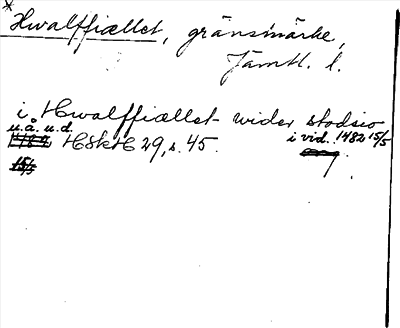 * Hwalffiællet, gränsmärke,
Jämtl. l.
i Hwalffiællet wider stodsio
u.å. u.d. i vid. 1482 15/5
1482 HSkH 29, s. 45.
15/5